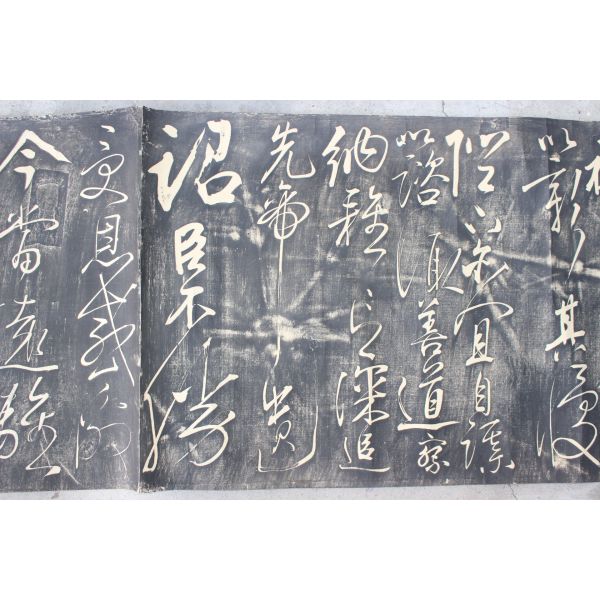 以彰其慢
陛下亦宜自謀
以諮諏善道察
納雅言深追
先帝遺
詔臣不勝
受恩感激
今當遠離